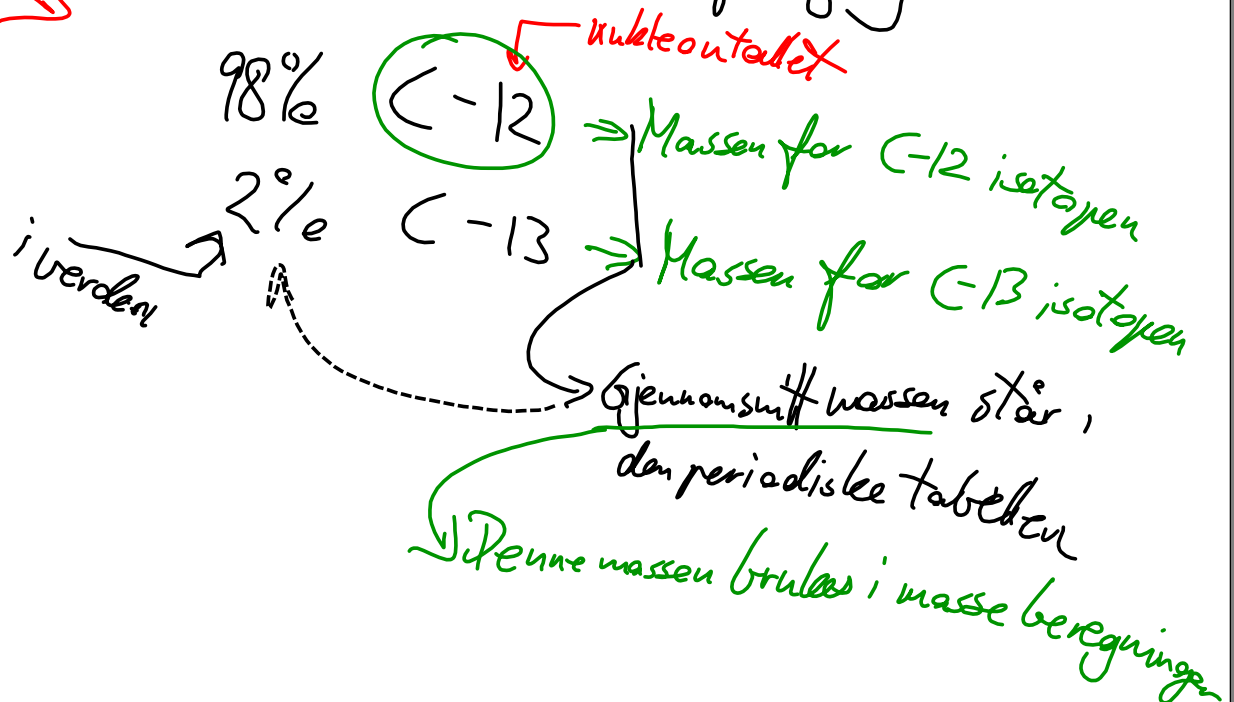 nukleontallet
98% C-12 => Massen for C-12 isotopen
2% C-13 => Massen for C-13 isotopen
i verden
Gjennomsnitt massen står i
den periodiske tabellen
Denne massen brukes i masse beregninger